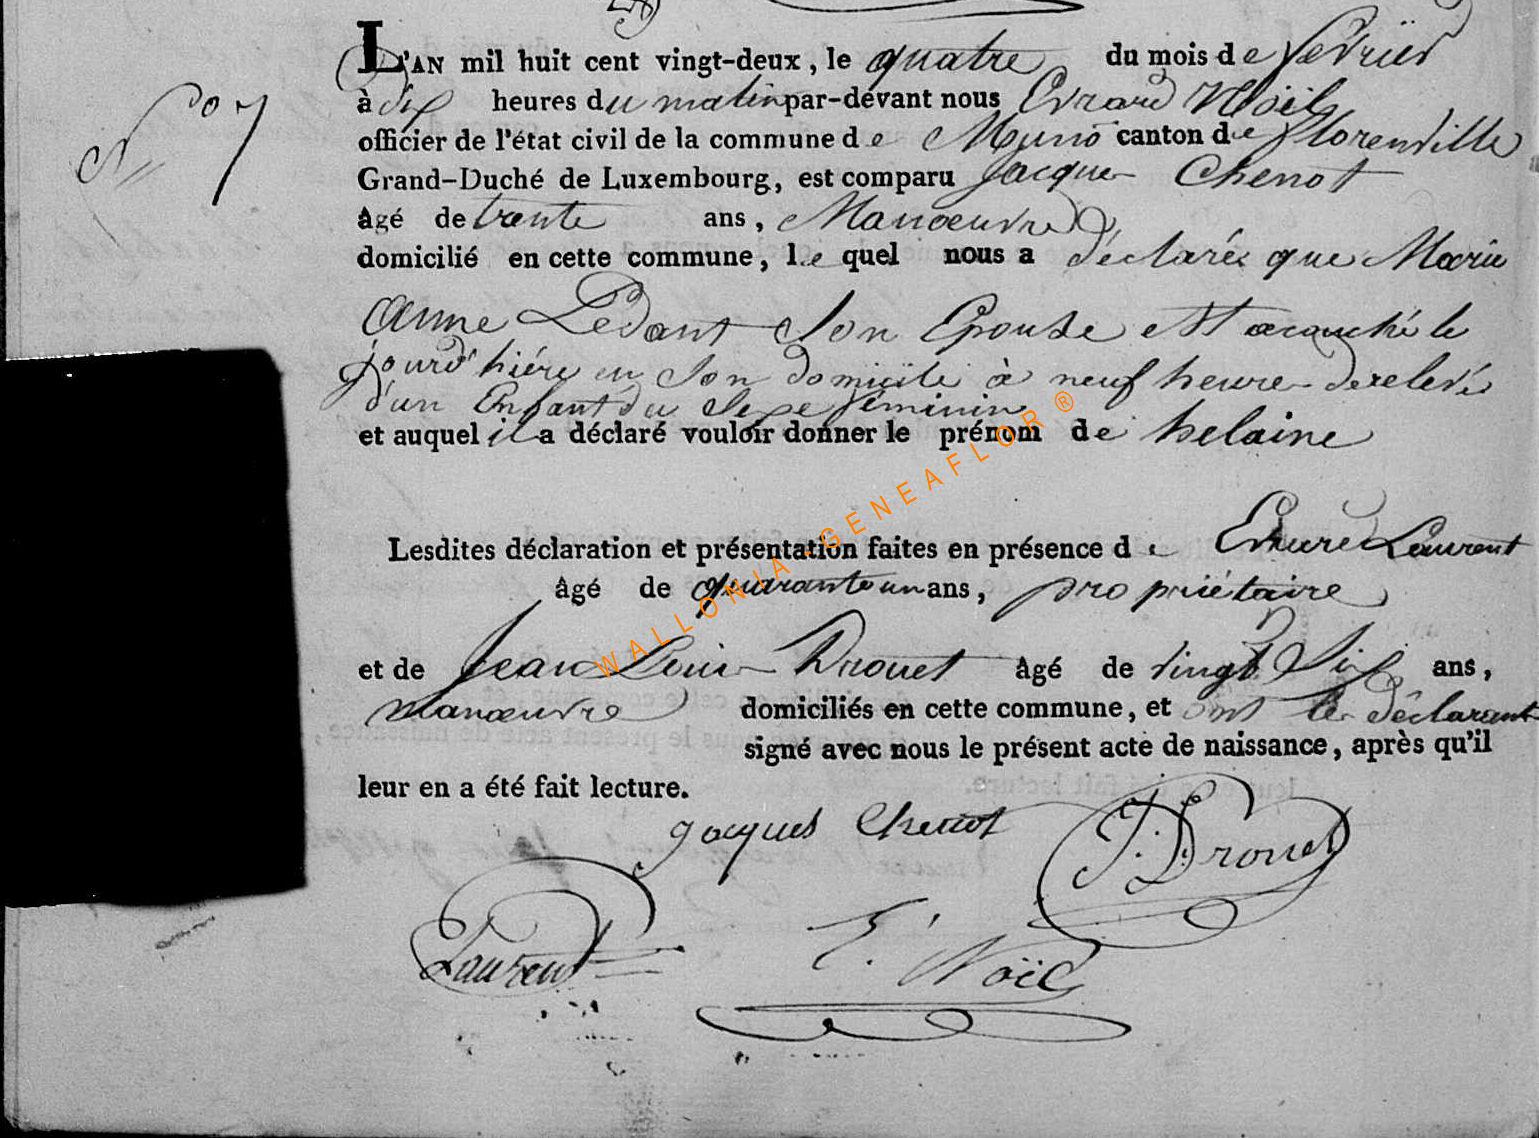 L'AN mil huit cent vingt-deux, le quatre du mois de fevrier
N° 7
à dix heures du matin par-devant nous Evrard Noël
officier de l'état civil de la commune de Muno canton de florenville
Grand-Duché de Luxembourg, est comparu Jacques Chenot
âgé de trente ans, Manoeuvre
domicilié en cette commune, le quel nous a déclaré que Marie
Anne Ledant son Epouse est acouché le
jourd'hiére en son domicile à neuf heures de relevée
d'un Enfant du sexe féminin
et auquel il a déclaré vouloir donner le prénom de helaine
WALLONIA-GENEAFLOR ®
Lesdites déclaration et présentation faites en présence de Laurent
âgé de quarante un ans, propriétaire
et de Jean Louis Drouet âgé de vingt Six ans,
manoeuvre domiciliés en cette commune, et ont les déclarant
signé avec nous le présent acte de naissance, après qu'il
leur en a été fait lecture.
jacques Chenot
J: Drouet
Laurent
E. Noël